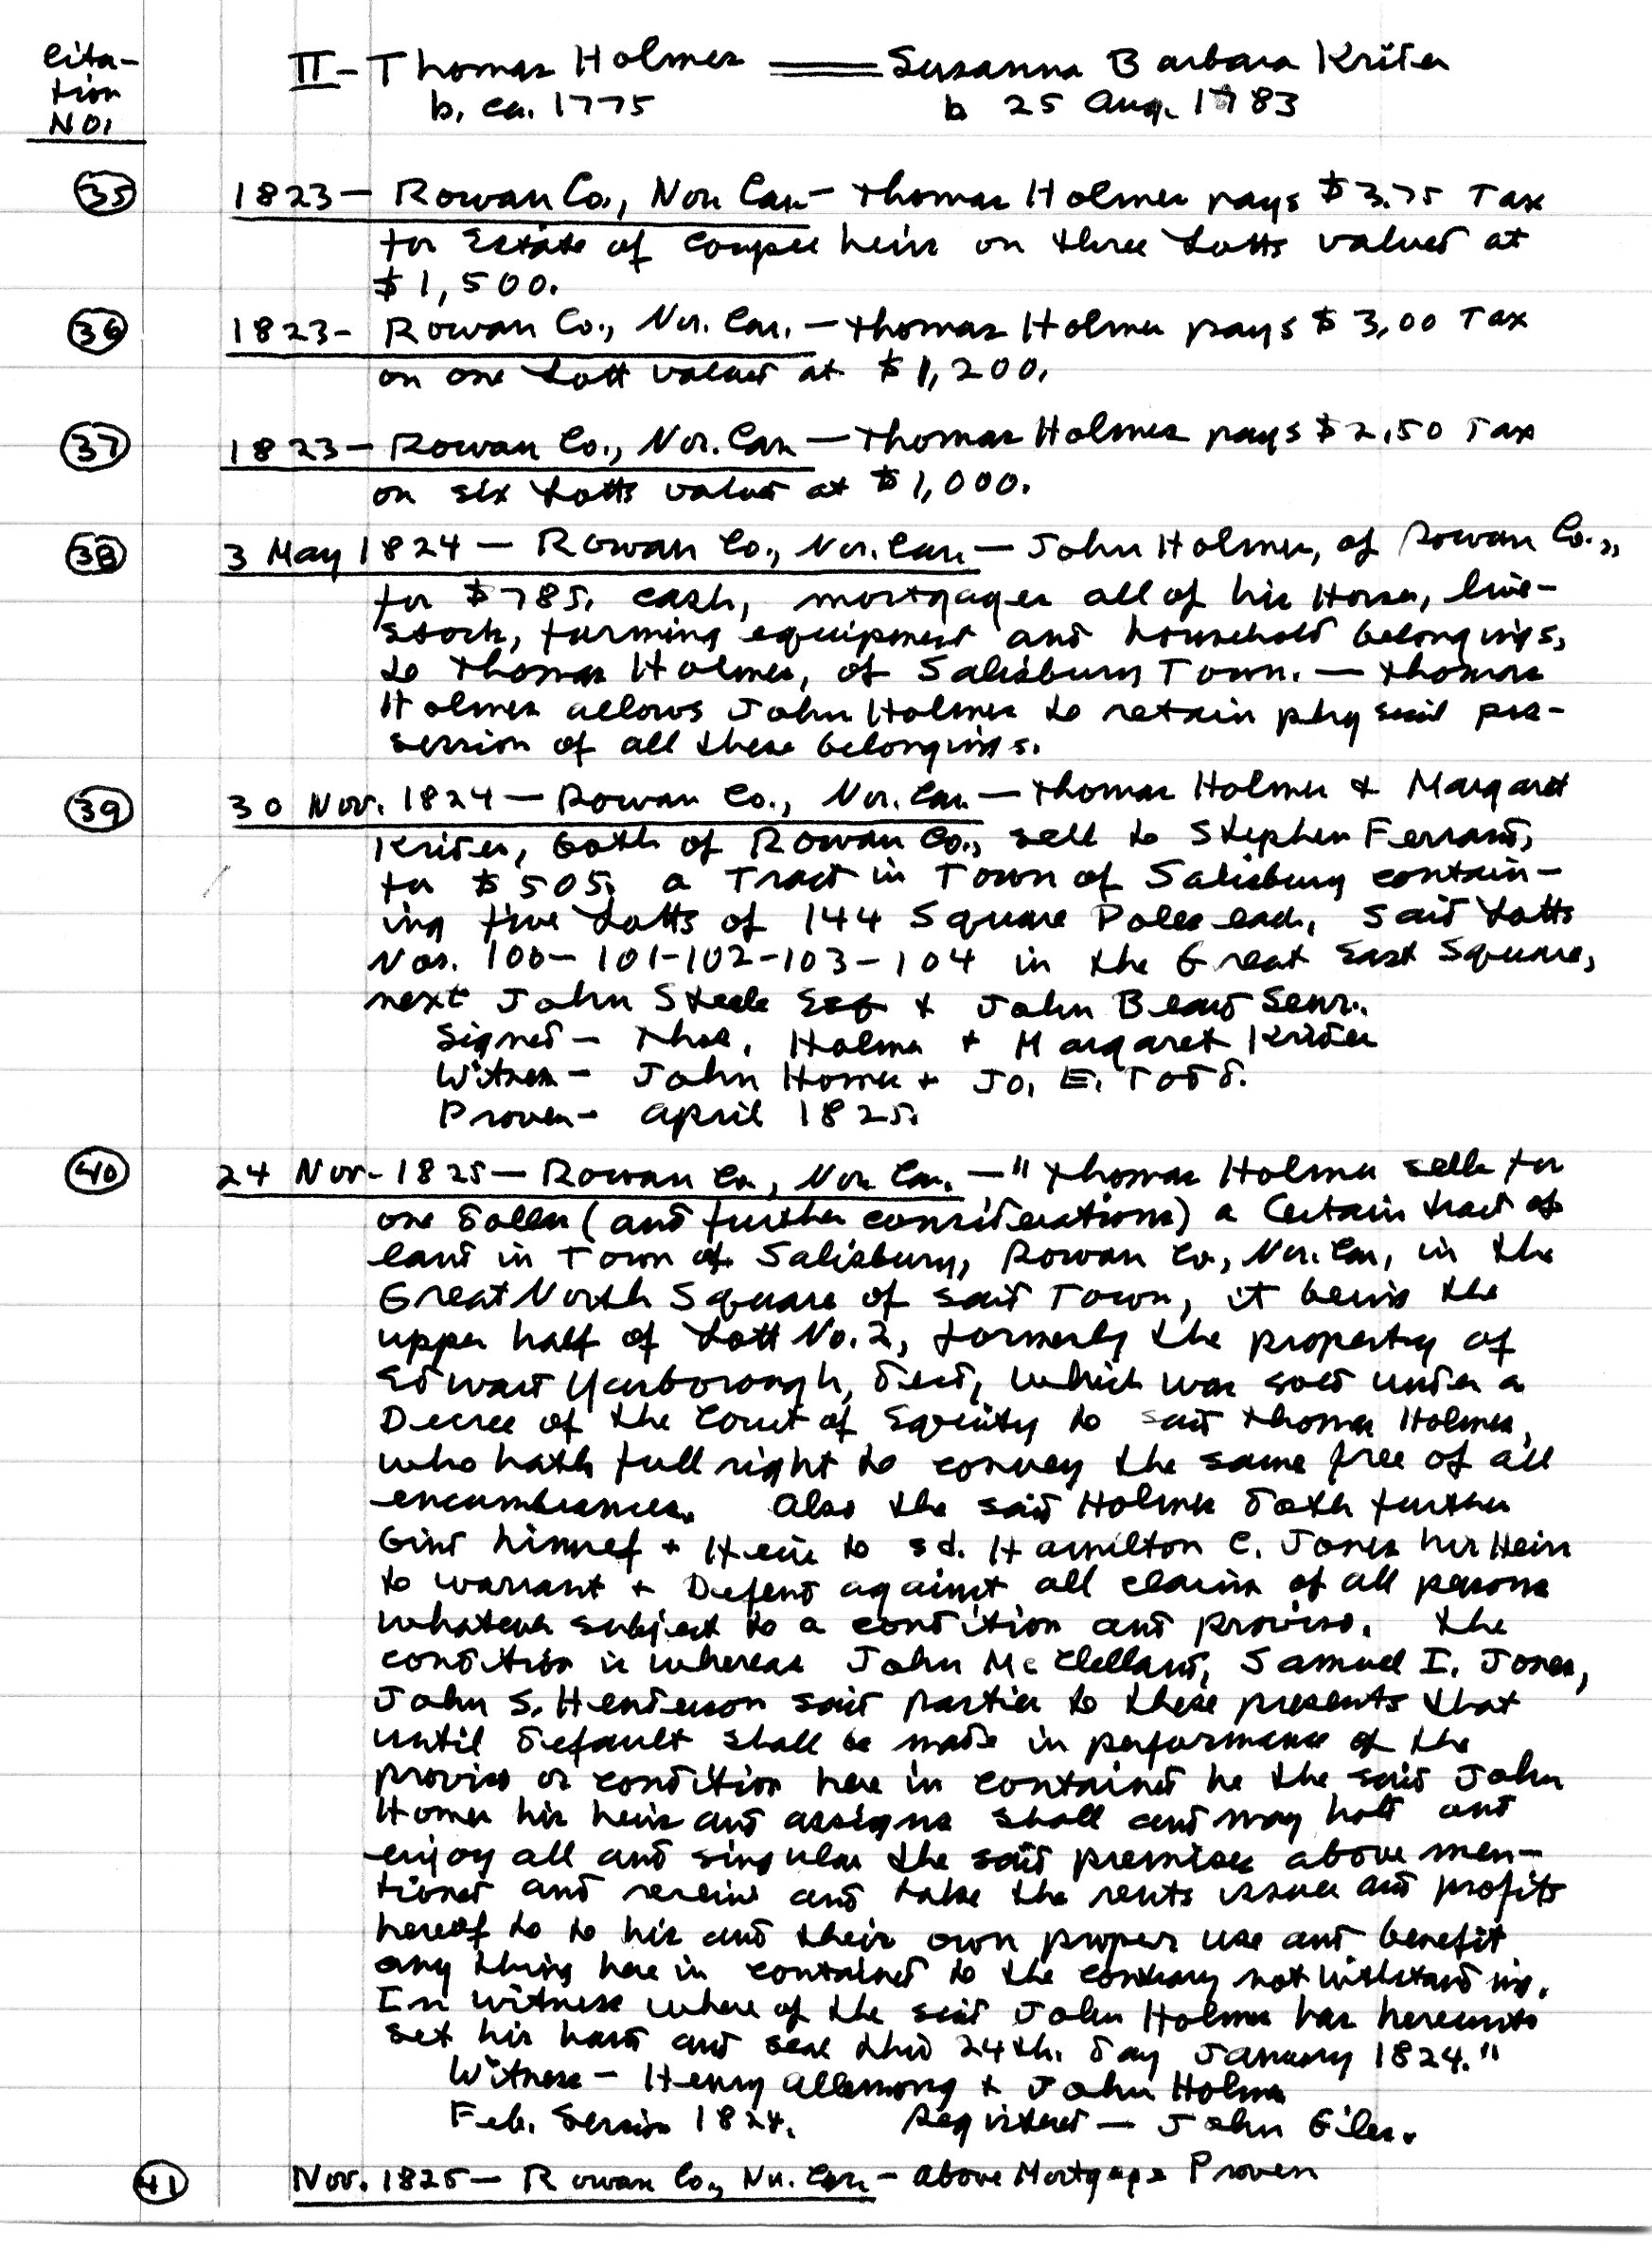 Cita-
tion
No.
II - Thomas Holmes == Susanna Barbara Krider
b. ca. 1775 b 25 Aug. 1783
35 1823 - Rowan Co., Nor. Car. - Thomas Holmes pays $3.75 Tax
for Estate of heirs on three Lotts valued at
$1,500.
36 1823 - Rowan Co., Nor. Car. - Thomas Holmes pays $3.00 Tax
on one Lott valued at $1,200.
37 1823 - Rowan Co., Nor. Car. - Thomas Holmes pays $2.50 Tax
on six Lotts valued at $1,000.
38 3 May 1824 - Rowan Co., Nor. Car. - John Holmes, of Rowan Co.,
for $785. cash, mortgages all of his Horses, live-
stock, farming equipment and household belongings,
to Thomas Holmes, of Salisbury Town. - Thomas
Holmes allows John Holmes to retain physical pos-
session of all these belongings.
39 30 Nov. 1824 - Rowan Co., Nor. Car. - Thomas Holmes + Margaret
Krider, both of Rowan Co., sell to Stephen Ferrand,
for $505. a Tract in Town of Salisbury contain-
ing five Lotts of 144 Square Poles each, said Lotts
Nos. 100-101-102-103-104 in the Great East Square,
next John Steele Esq + John Beard Senr.
Signed - Thos. Holmes + Margaret Krider
Witness - John Homes + Jo. E. Todd.
Proven - April 1825.
40 24 Nov - 1825 - Rowan Co, Nor. Car. - "Thomas Holmes sells for
one dollar (and further considerations) a Certain tract of
land in Town of Salisbury, Rowan Co, Nor. Car, in the
Great North Square of said Town, it being the
upper half of Lott No. 2, formerly the property of
Edward Yarborough, decd, which was sold under a
Decree of the Court of Equity to said Thomas Holmes,
who hath full right to convey the same free of all
encumbrances. Also the said Holmes doth further
bind himself + Heirs to sd. Hamilton C. Jones his Heirs
to warrant + Defend against all claims of all persons
whatever subject to a condition and proviso. The
condition is whereas John McClelland, Samuel I. Jones,
John S. Henderson said parties to these presents that
until default shall be made in performance of the
proviso or condition here in contained he the said John
Homes his heirs and assigns shall and may hold and
enjoy all and singular the said premises above men-
tioned and receive and take the rents issues and profits
hereof to to his and their own proper use and benefit
any thing here in contained to the contrary not withstanding.
In witness where of the said John Holmes has hereunto
set his hand and seal this 24th. day January 1824."
Witness - Henry Allemong + John Holmes
Feb. Session 1824. Registered - John Giles.
41 Nov. 1825 - Rowan Co., Nor. Car. - above Mortgage Proven